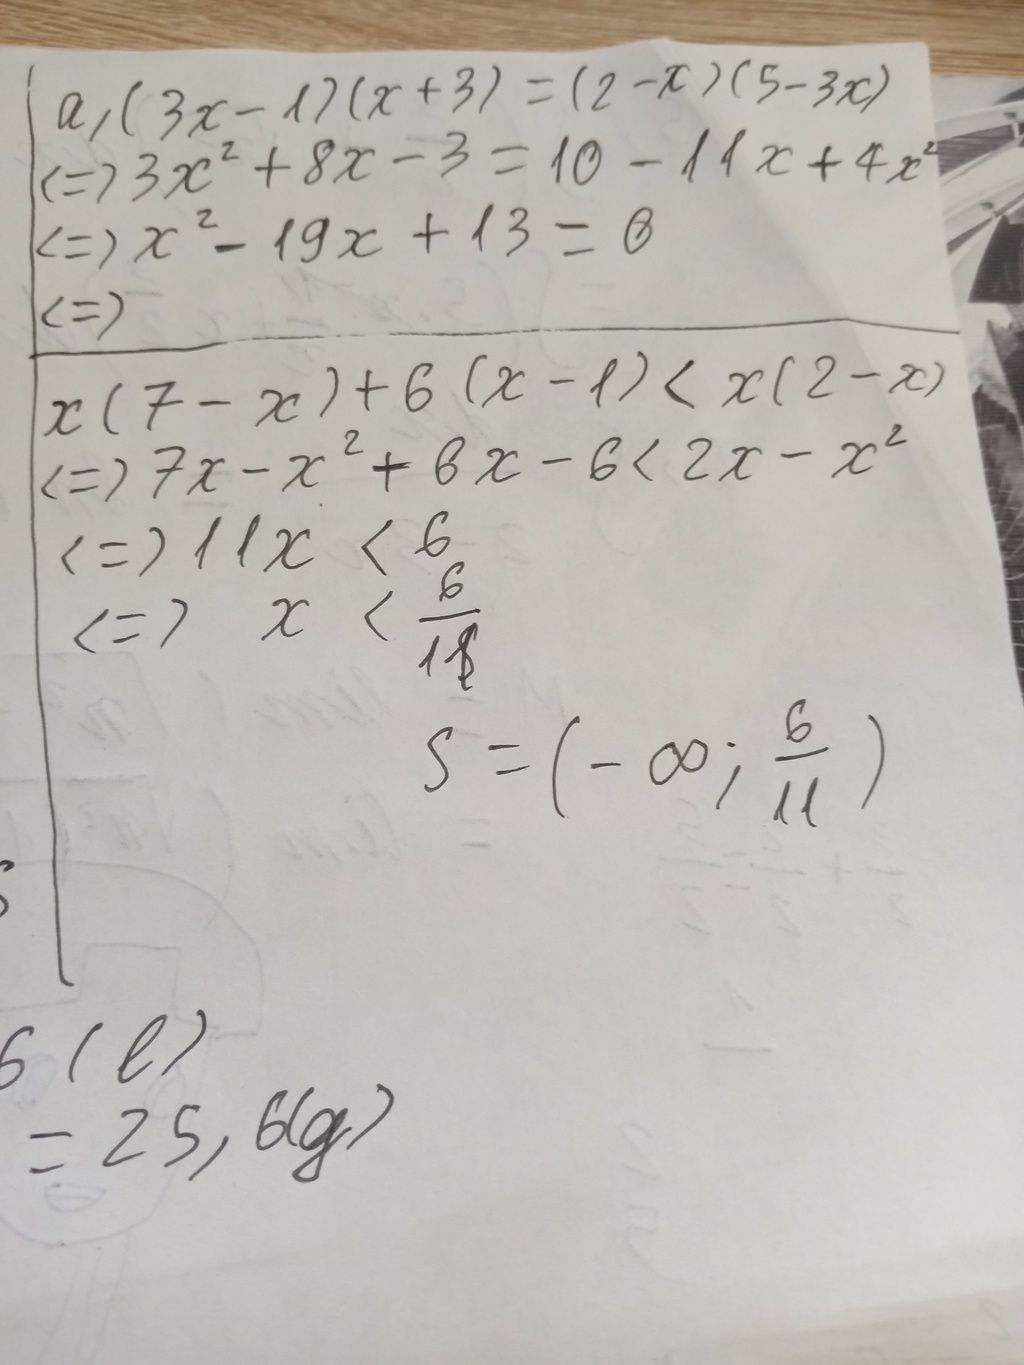 a, (3x - 1)(x + 3) = (2 - x)(5 - 3x)
<=> 3x² + 8x - 3 = 10 - 11x + 4x²
<=> x² - 19x + 13 = 0
<=>
x(7 - x) + 6(x - 1) < x(2 - x)
<=> 7x - x² + 6x - 6 < 2x - x²
<=> 11x < 6
<=> x < 6/11
S = (-∞; 6/11)
6 (l)
= 25,6(g)